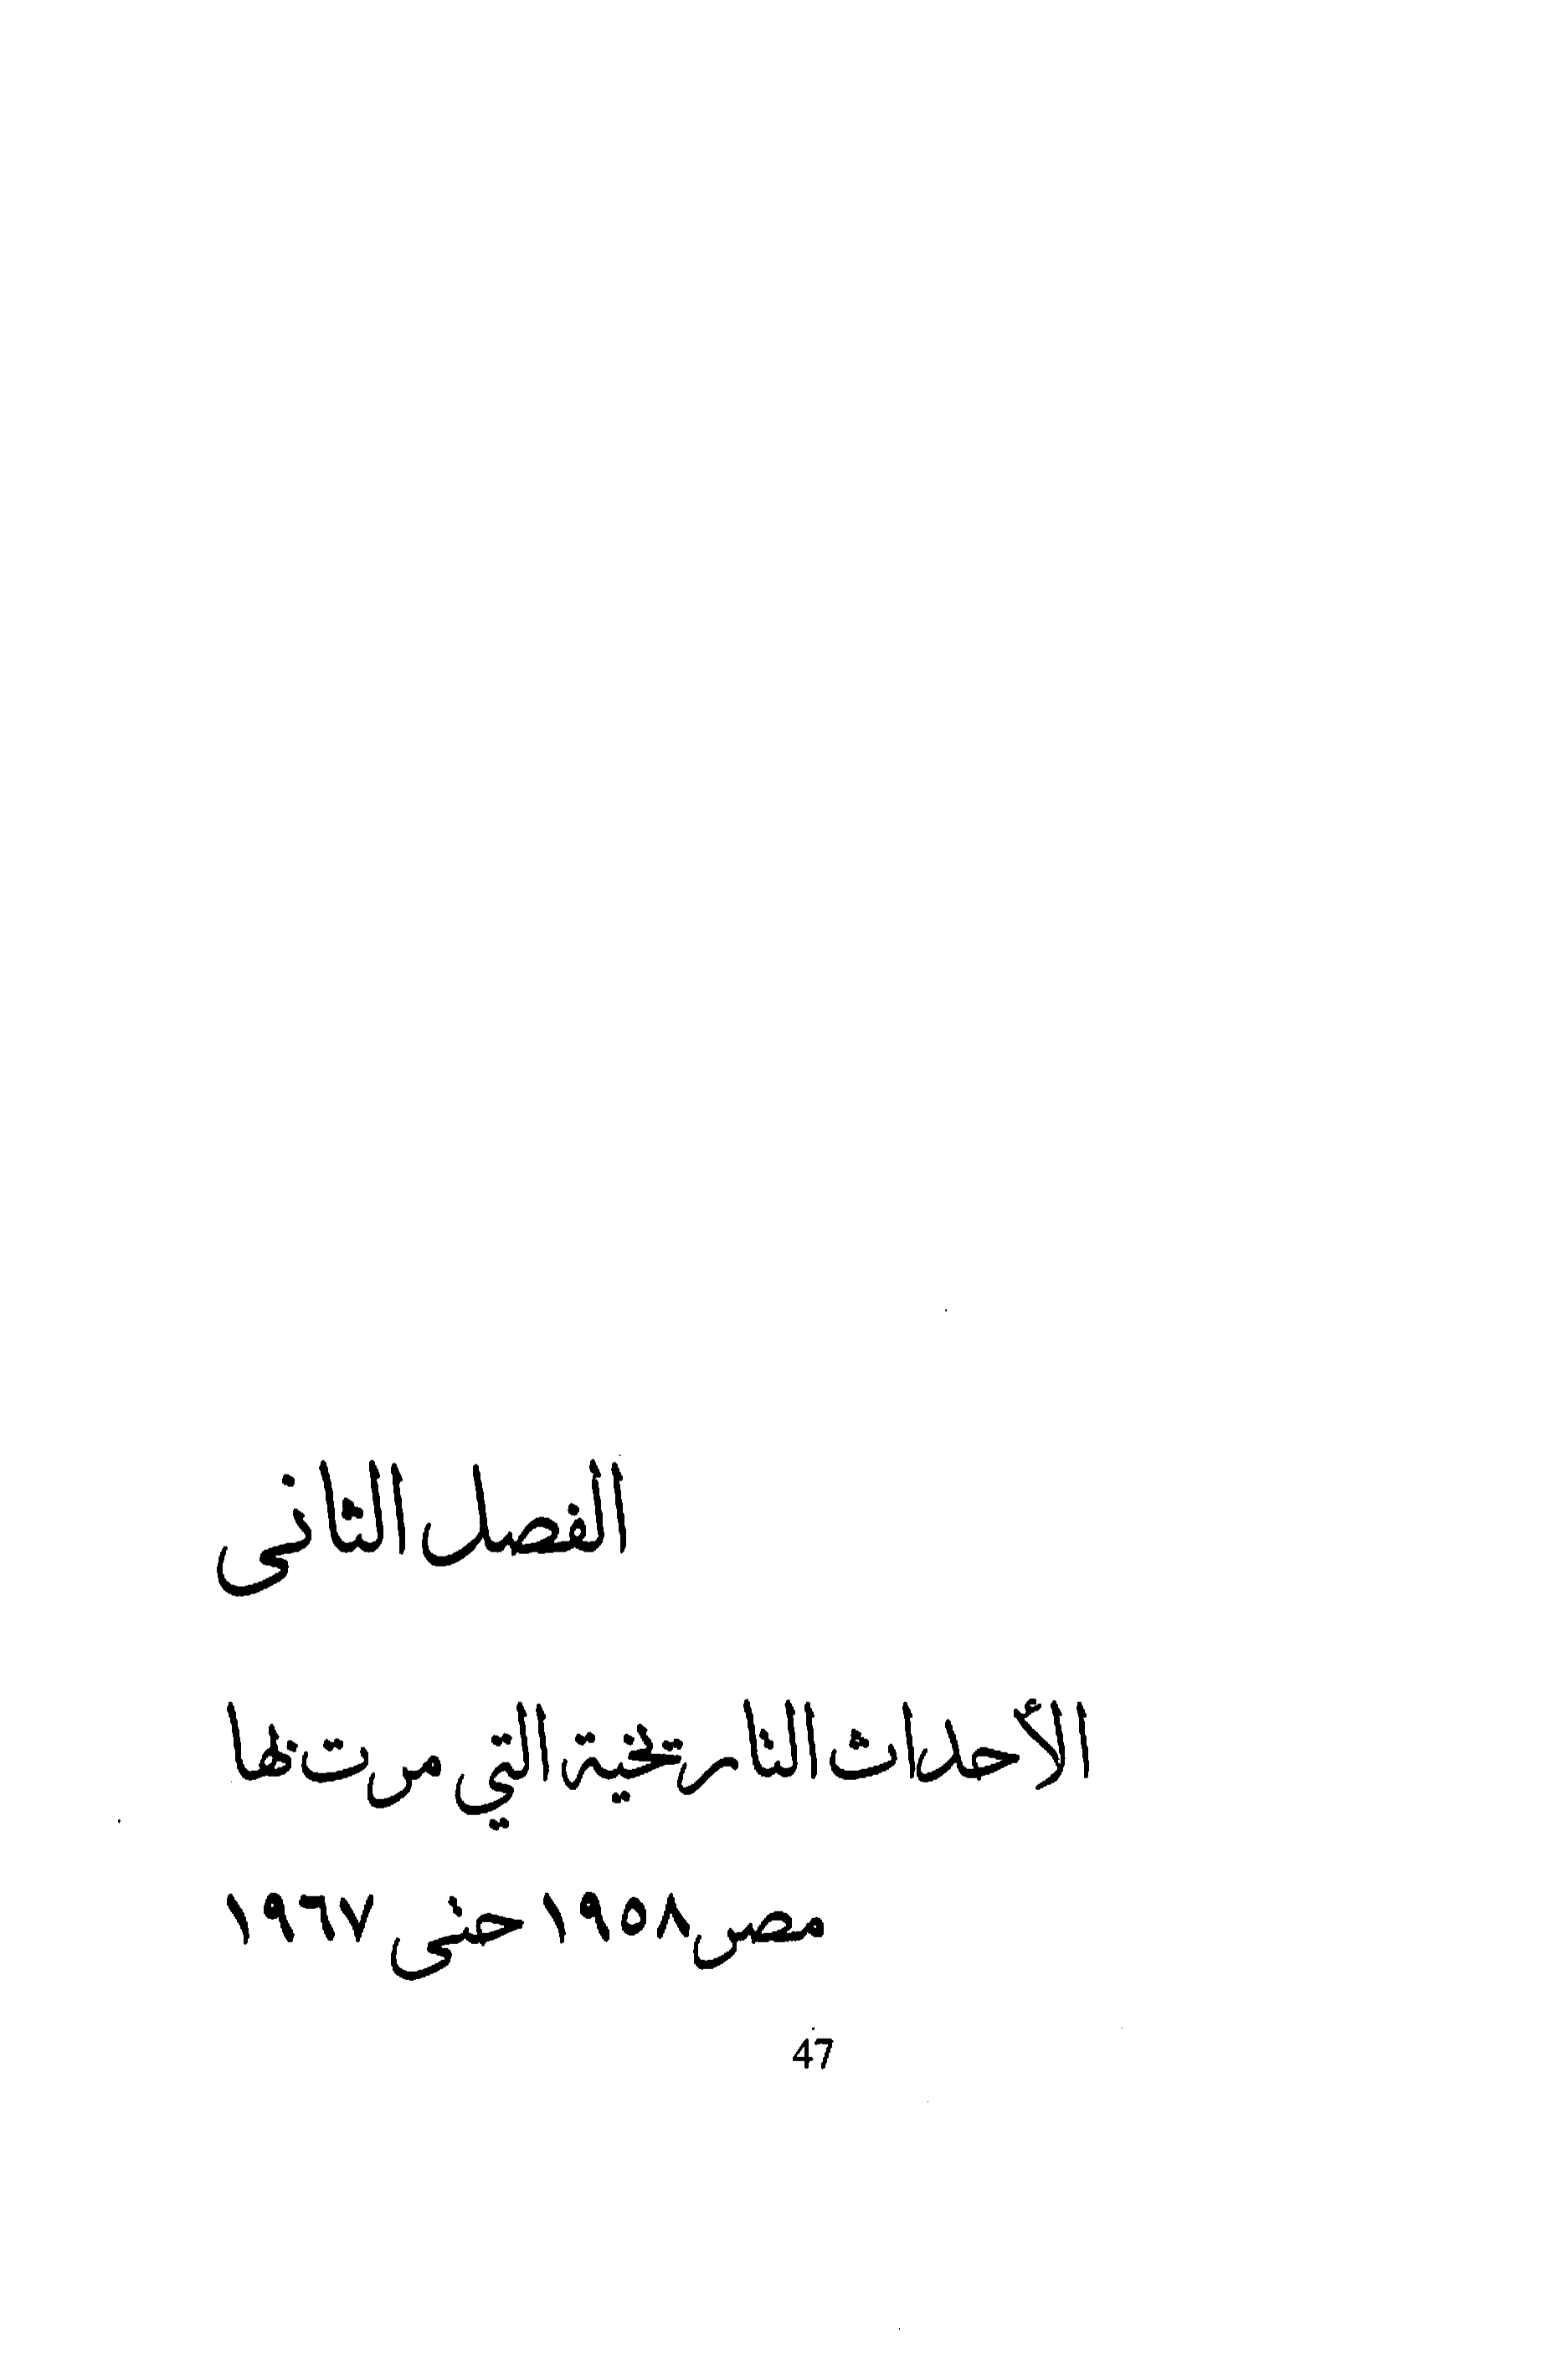 الفصل الثانى
الأحداث التاريخية التي مرت بها
مصر ١٩٥٨ حتى ١٩٦٧
47